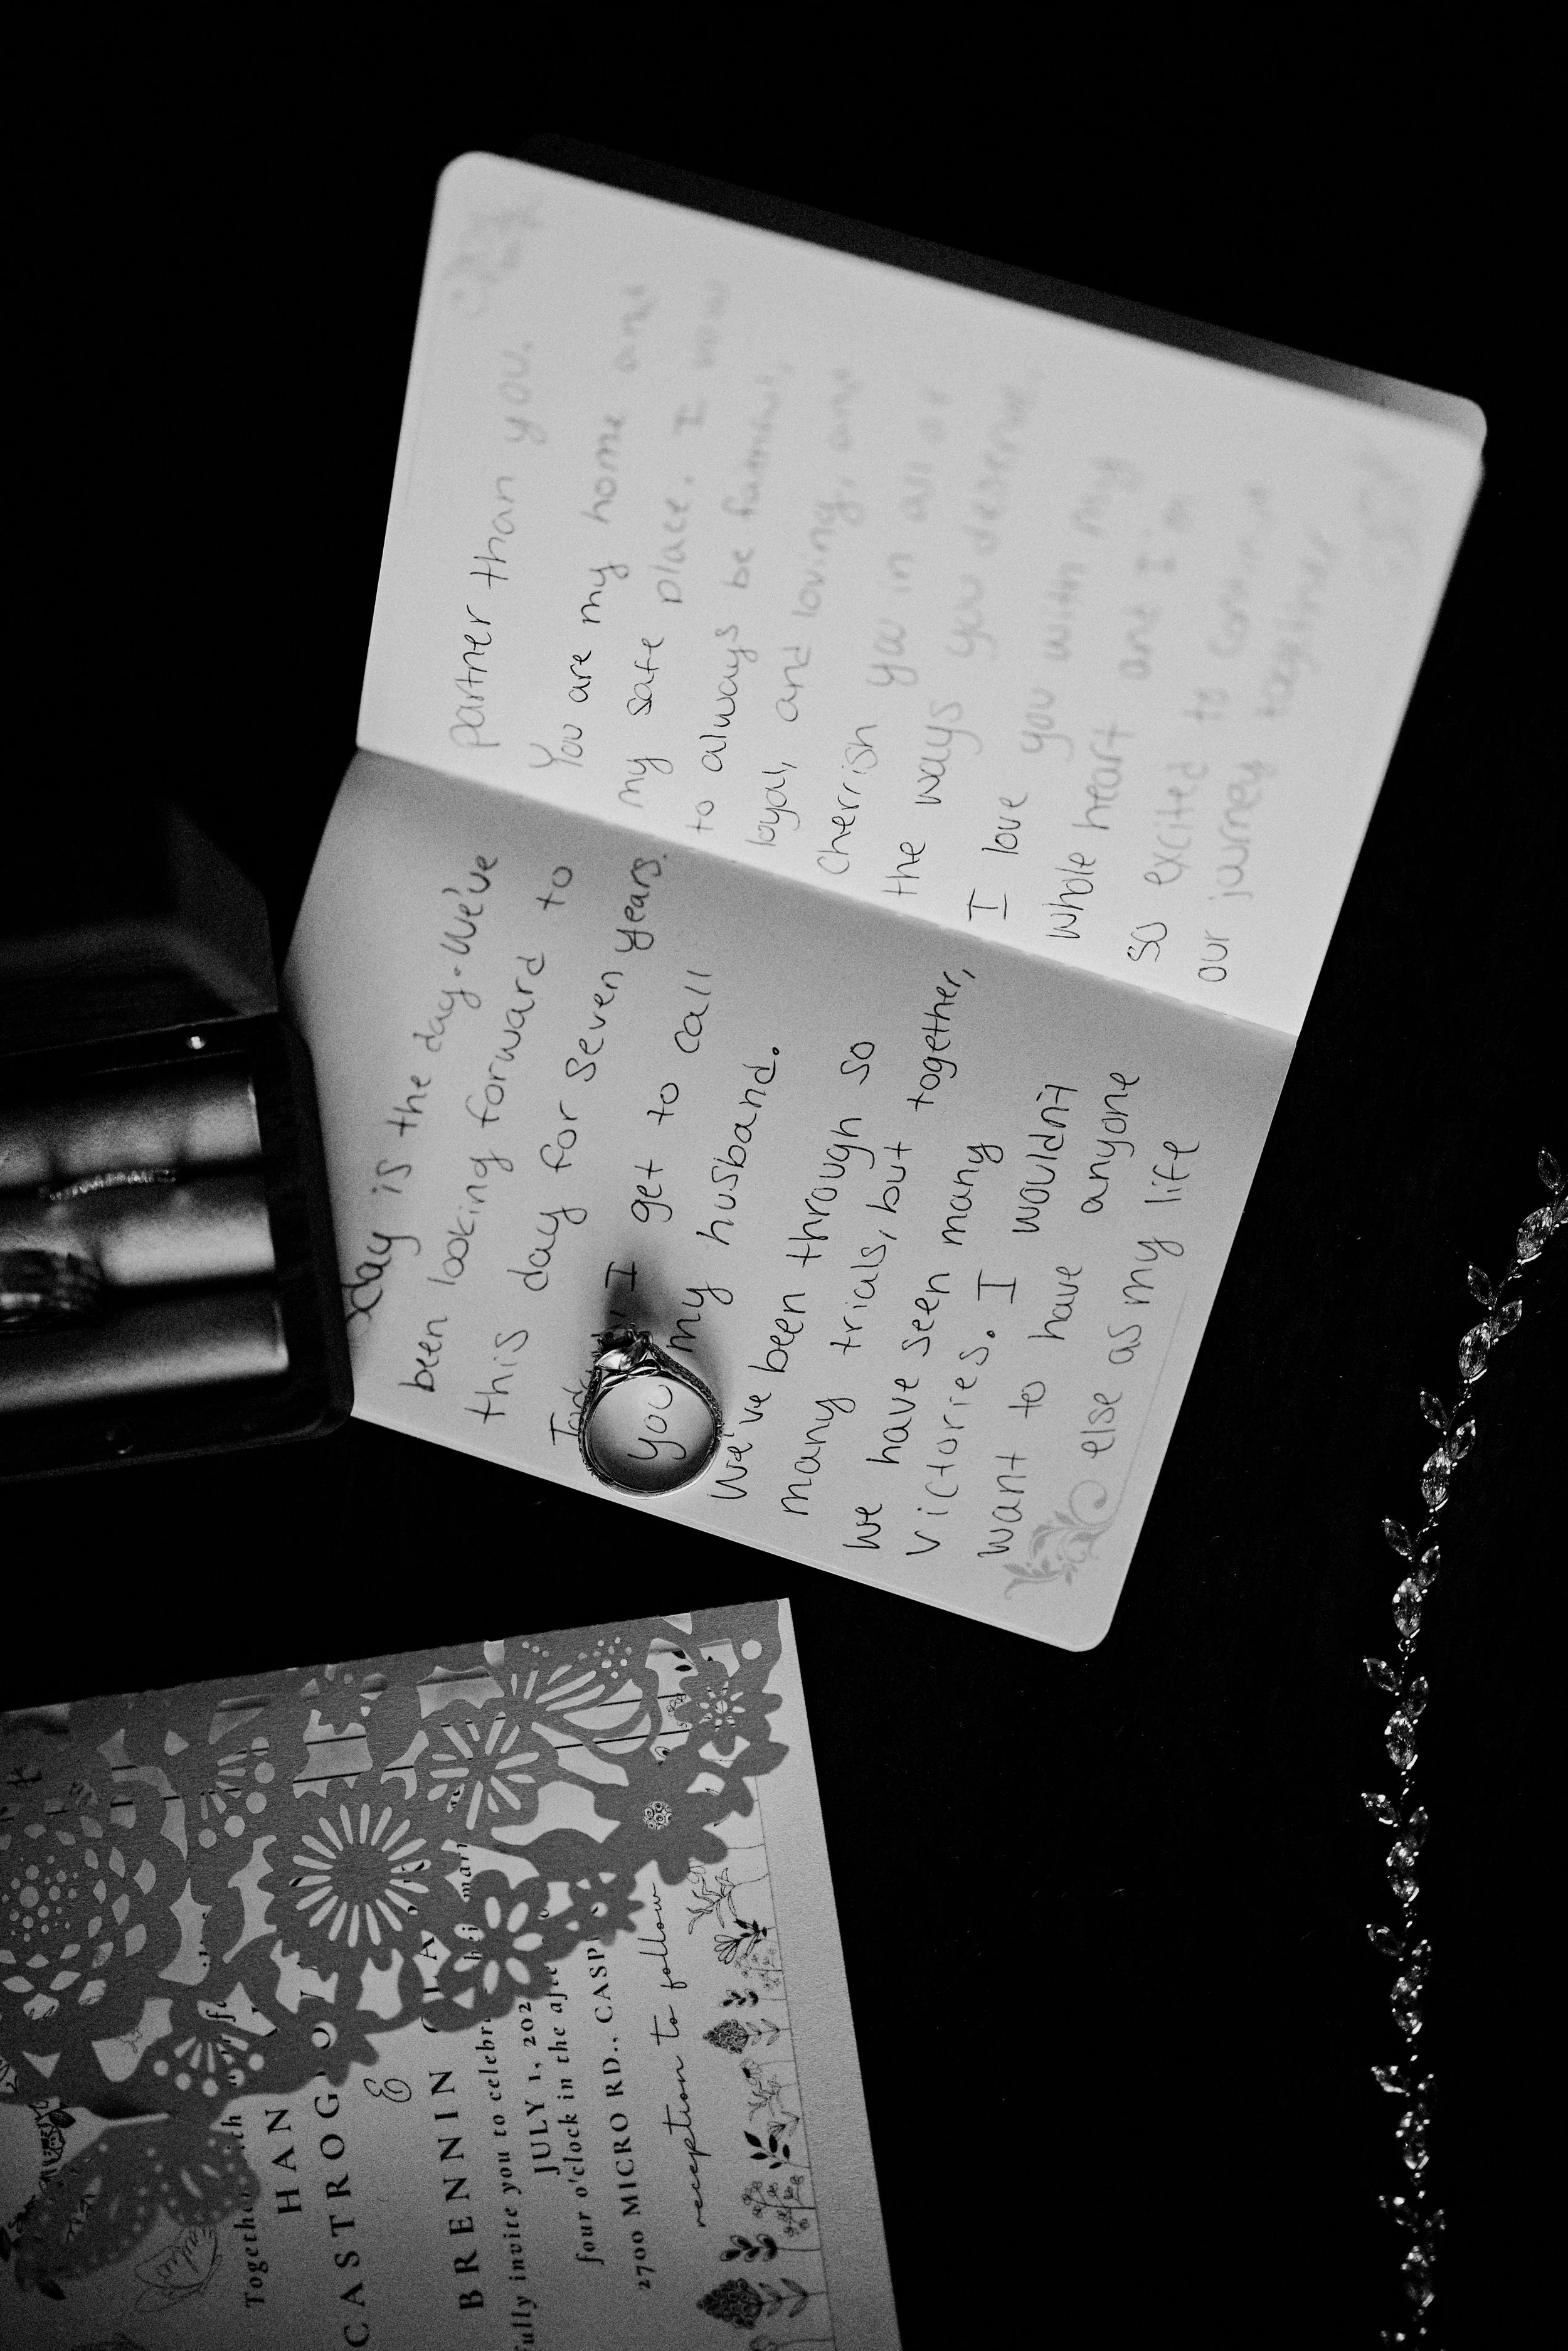 day is the day. We've
been looking forward to
this day for seven years.
I get to call
you my husband.
We've been through so
many trials, but together,
we have seen many
victories. I wouldn't
want to have anyone
else as my life
partner than you.
You are my home and
my safe place. I vow
to always be faithful,
loyal, and loving, and
cherrish you in all of
the ways you deserve.
I love you with my
whole heart and I'm
so excited to continue
our journey together
Together with
HAN
CASTROG
&
BRENNIN
fully invite you to celebr
JULY 1, 202
four o'clock in the af
2700 MICRO RD., CASP
reception to follow